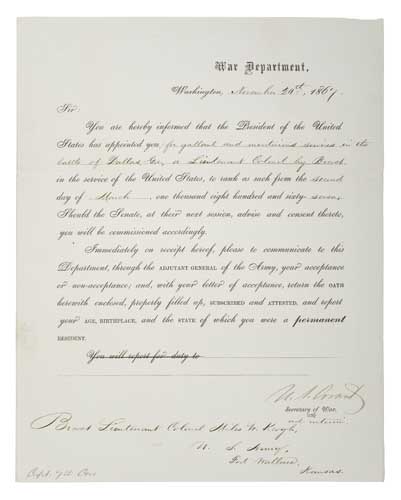 War Department,
Washington, November 21st, 1867.
Sir:
You are hereby informed that the President of the United
States has appointed you for gallant and meritorious services in the
battle of Dallas Ga., a Lieutenant Colonel by Brevet
in the service of the United States, to rank as such from the second
day of March, one thousand eight hundred and sixty-seven.
Should the Senate, at their next session, advise and consent thereto,
you will be commissioned accordingly.
Immediately on receipt hereof, please to communicate to this
Department, through the ADJUTANT GENERAL of the Army, your acceptance
or non-acceptance; and, with your letter of acceptance, return the OATH
herewith enclosed, properly filled up, SUBSCRIBED and ATTESTED, and report
your AGE, BIRTHPLACE, and the STATE of which you were a permanent
RESIDENT.
You will report for duty to
U. S. Grant
Secretary of War,
ad interim.
Brevet Lieutenant Colonel Miles W. Keogh,
U. S. Army,
Fort Wallace,
Kansas.
Capt. 7th Cav.